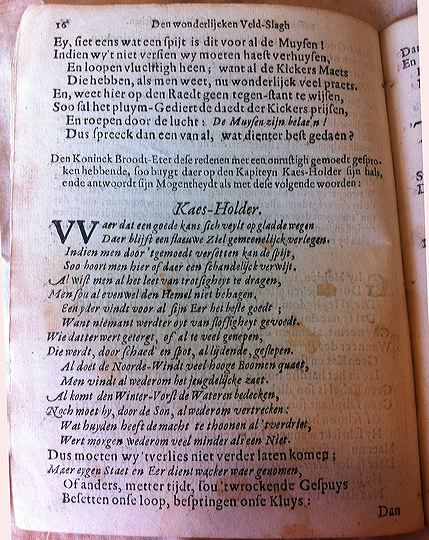 16 Den wonderlijcken Veld-Slagh
Ey, siet eens wat een spijt is dit voor al de Muysen !
Indien wy't niet versien wy moeten haest verhuysen,
En loopen vluchtigh heen; want al de Kickers Maets
Die hebben, als men weet, nu wonderlijck veel praets.
En, weet hier op den Raedt geen tegen-stant te wijsen,
Soo sal het pluym-Gediert de daedt der Kickers prijsen,
En roepen door de lucht : De Muysen zijn belae'n !
Dus spreeck dan een van al, wat dienter best gedaen ?
Den Koninck Broodt-Eter dese redenen met een onrustigh gemoedt gespro-
ken hebbende, soo buygt daer op den Kapiteyn Kaes-Holder sijn hals,
ende antwoordt sijn Mogentheydt als met dese volgende woorden :
Kaes-Holder.
VVaer dat een goede kans sich veylt op gladde wegen
Daer blijft een flauwe Ziel gemeenelijck verlegen.
Indien men door 'tgemoedt versetten kan de spijt,
Soo hoort men hier of daer een schandelijck verwijt.
Al wist men al het leet van trotsigheyt te dragen,
Men sou al evenwel den Hemel niet behagen.
Een yder vindt voor al sijn Eer het beste goedt ;
Want niemant werdter oyt van sloffigheyt gevoedt.
Wie datter wert getergt, of al te veel genepen,
Die werdt, door schaed' en spot, al lijdende, geslepen.
Al doet de Noorde-Windt veel hooge Boomen quaet,
Men vindt al wederom het jeugdelijcke zaet.
Al komt den Winter-Vorst de Wateren bedecken,
Noch moet hy, door de Son, al wederom vertrecken :
Wat huyden heeft de macht te thoonen al 'tverdriet,
Wert morgen wederom veel minder als een Niet.
Dus moeten wy 'tverlies niet verder laten komen;
Maer eygen Staet en Eer dient wacker waer genomen,
Of anders, metter tijdt, sou 'twrockende Gespuys
Besetten onse loop, bespringen onse Kluys :
Dan